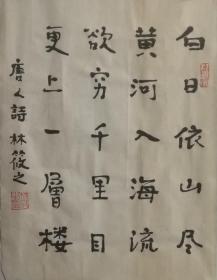 白日依山尽
黄河入海流
欲穷千里目
更上一層楼
唐人詩 林筱之